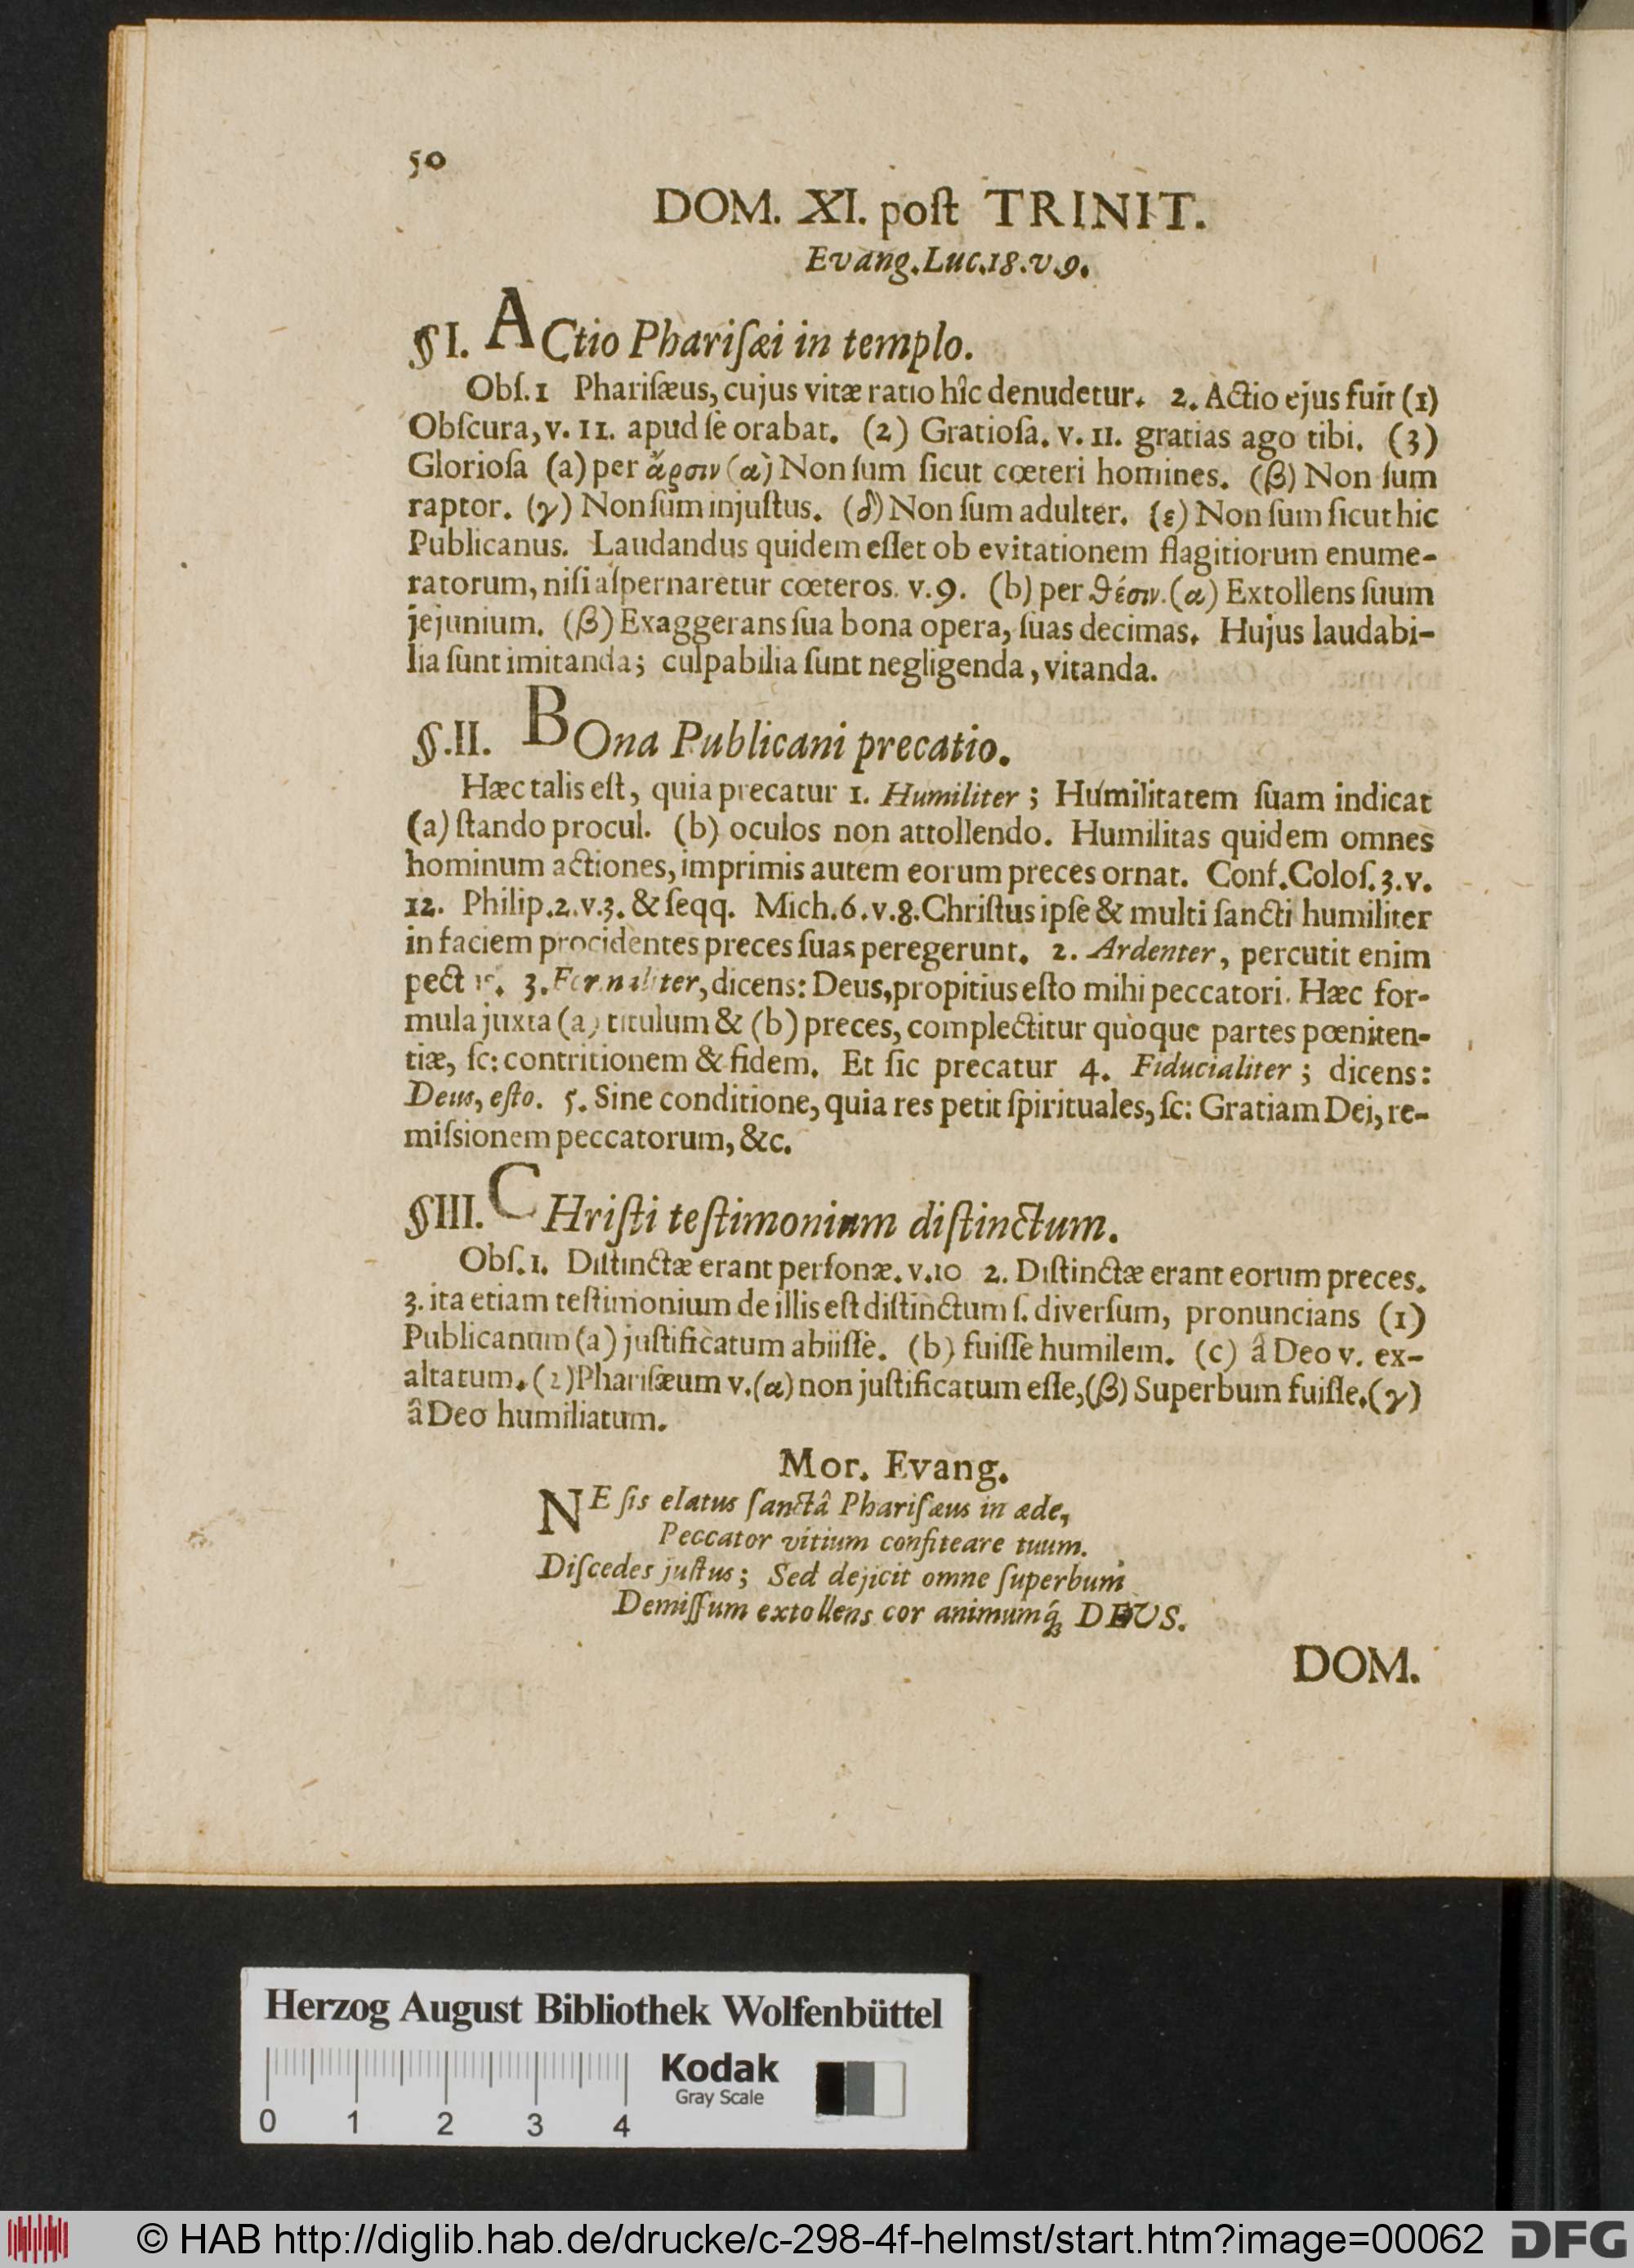 50
DOM. XI. poſt TRINIT.
Evang. Luc. 18. v. 9.
§ I. ACtio Phariſæi in templo.
Obſ. 1 Phariſæus, cujus vitæ ratio hîc denudetur. 2. Actio ejus fuit (1)
Obſcura, v. 11. apud ſe orabat. (2) Gratioſa. v. 11. gratias ago tibi. (3)
Glorioſa (a) per ἄρσιν (α) Non ſum ſicut cœteri homines. (β) Non ſum
raptor. (γ) Non ſum injuſtus. (δ) Non ſum adulter. (ε) Non ſum ſicut hic
Publicanus. Laudandus quidem eſſet ob evitationem flagitiorum enume-
ratorum, niſi aſpernaretur cœteros. v. 9. (b) per θέσιν. (α) Extollens ſuum
jejunium. (β) Exaggerans ſua bona opera, ſuas decimas. Hujus laudabi-
lia ſunt imitanda; culpabilia ſunt negligenda, vitanda.
§. II. BOna Publicani precatio.
Hæc talis eſt, quia precatur 1. Humiliter; Humilitatem ſuam indicat
(a) ſtando procul. (b) oculos non attollendo. Humilitas quidem omnes
hominum actiones, imprimis autem eorum preces ornat. Conf. Coloſ. 3. v.
12. Philip. 2. v. 3. & ſeqq. Mich. 6. v. 8. Chriſtus ipſe & multi ſancti humiliter
in faciem procidentes preces ſuas peregerunt. 2. Ardenter, percutit enim
pectus. 3. Formaliter, dicens: Deus, propitius eſto mihi peccatori. Hæc for-
mula juxta (a) titulum & (b) preces, complectitur quoque partes pœniten-
tiæ, ſc: contritionem & fidem. Et ſic precatur 4. Fiducialiter; dicens:
Deus, eſto. 5. Sine conditione, quia res petit ſpirituales, ſc: Gratiam Dei, re-
miſsionem peccatorum, &c.
§ III. CHriſti teſtimonium diſtinctum.
Obſ. 1. Diſtinctæ erant perſonæ. v. 10 2. Diſtinctæ erant eorum preces.
3. ita etiam teſtimonium de illis eſt diſtinctum ſ. diverſum, pronuncians (1)
Publicanum (a) juſtificatum abiiſſe. (b) fuiſſe humilem. (c) â Deo v. ex-
altatum. (2) Phariſæum v. (α) non juſtificatum eſſe, (β) Superbum fuiſſe. (γ)
â Deo humiliatum.
Mor. Evang.
NE ſis elatus ſanctâ Phariſæus in æde,
Peccator vitium confiteare tuum.
Diſcedes juſtus; Sed dejicit omne ſuperbum
Demiſſum extollens cor animumq́; DEUS.
DOM.
Herzog August Bibliothek Wolfenbüttel
Kodak
Gray Scale
0 1 2 3 4
© HAB http://diglib.hab.de/drucke/c-298-4f-helmst/start.htm?image=00062
DFG